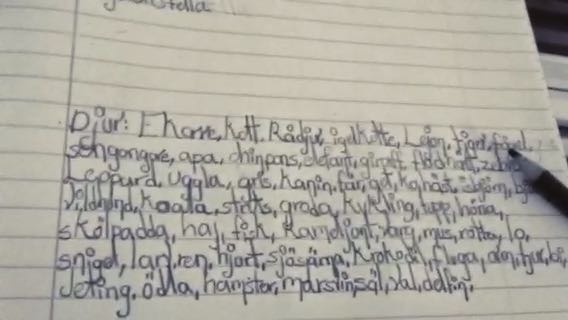 Djur: Ekorre, Katt, Rådjur, igelkotte, Lejon, tiger, fågel,
sengångare, apa, chinpans, elefant, giraff, flodhäst, zebra
Leopard, Uggla, gris, kanin, får, get, ko, häst, isbjörn,
vildhund, koala, stinks, groda, kyckling, tupp, höna,
skölpadda, haj, fisk, kameliont, varg, mus, råtta, lo,
snigel, larv, ren, hjort, sjösjärna, Krokodil, fluga, tjur, bi,
Geting, ödla, hamster, marsvin, säl, val, delfin,